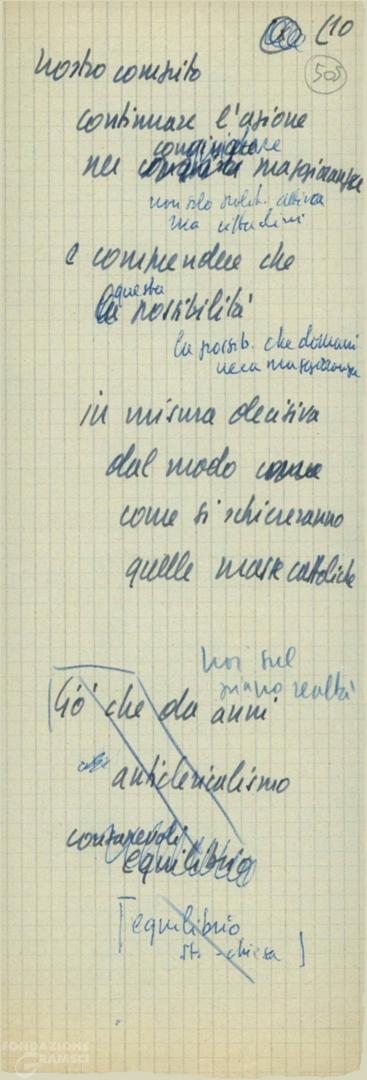 (10
505
nostro compito
continuare l'azione
conquistare
per conquista maggioranza
non solo polit. attiva
ma cittadini
e comprendere che
questa
la possibilità
la possib. che domani
maggioranza
in misura decisiva
dal modo come
come si schiereranno
quelle masse cattoliche
noi sul
piano realtà
Ciò che da anni
anticlericalismo
consapevoli
equilibrio
[equilibrio
st. - chiesa]
FONDAZIONE
GRAMSCI